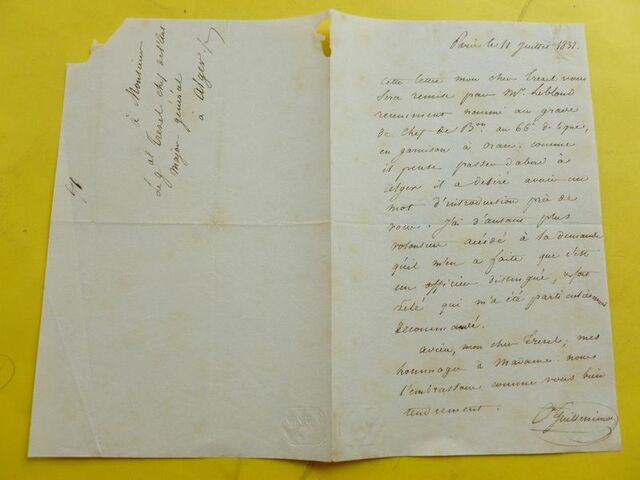 à Monsieur
Le g.al Trezel chef de l'état
major général
à Alger
Paris le 11 juillet 1831.
Cette lettre mon cher Trezel vous
sera remise par Mr. Leblond
récemment nommé au grade
de chef de B.on au 66e. de ligne,
en garnison à Oran. comme
il pense passer d'abord à
Alger il a désiré avoir un
mot d'introduction près de
vous. J'ai d'autant plus
volontiers accédé à sa demande
qu'il m'en a faite que c'est
un officier distingué, & fort
zélé qui m'a été particulièrement
recommandé.
adieu, mon cher Trezel, mes
hommages à Madame. nous
l'embrassons comme vous bien
tendrement.
Guilleminot